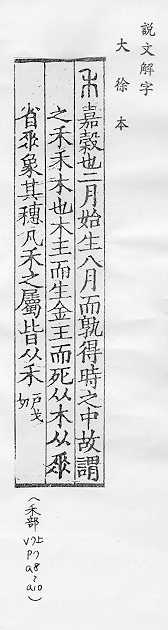 説文解字
大徐本
禾嘉穀也二月始生八月而孰得時之中故謂
之禾禾木也木王而生金王而死从木从𠂹
省𠂹象其穗凡禾之屬皆从禾戶戈切
(禾部
V7上
P7
a8~
a10)